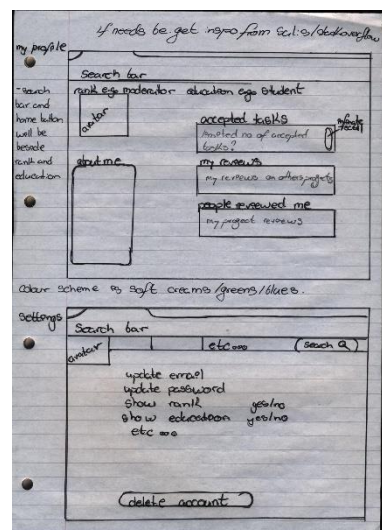 if needs be get inspo from sci.is/stackoverflow
my profile
Search bar
rank eg: moderator education eg: student
avatar
- search
bar and
home button
will be
beside
rank and
education
accepted tasks
limited no of accepted
tasks?
infinate
scroll
about me
my reviews
my reviews on others projects
people reviewed me
my project reviews
colour scheme is soft creams/greens/blues.
settings
Search bar
avatar
etc...
search
update email
update password
show rank yes/no
show education yes/no
etc ...
delete account